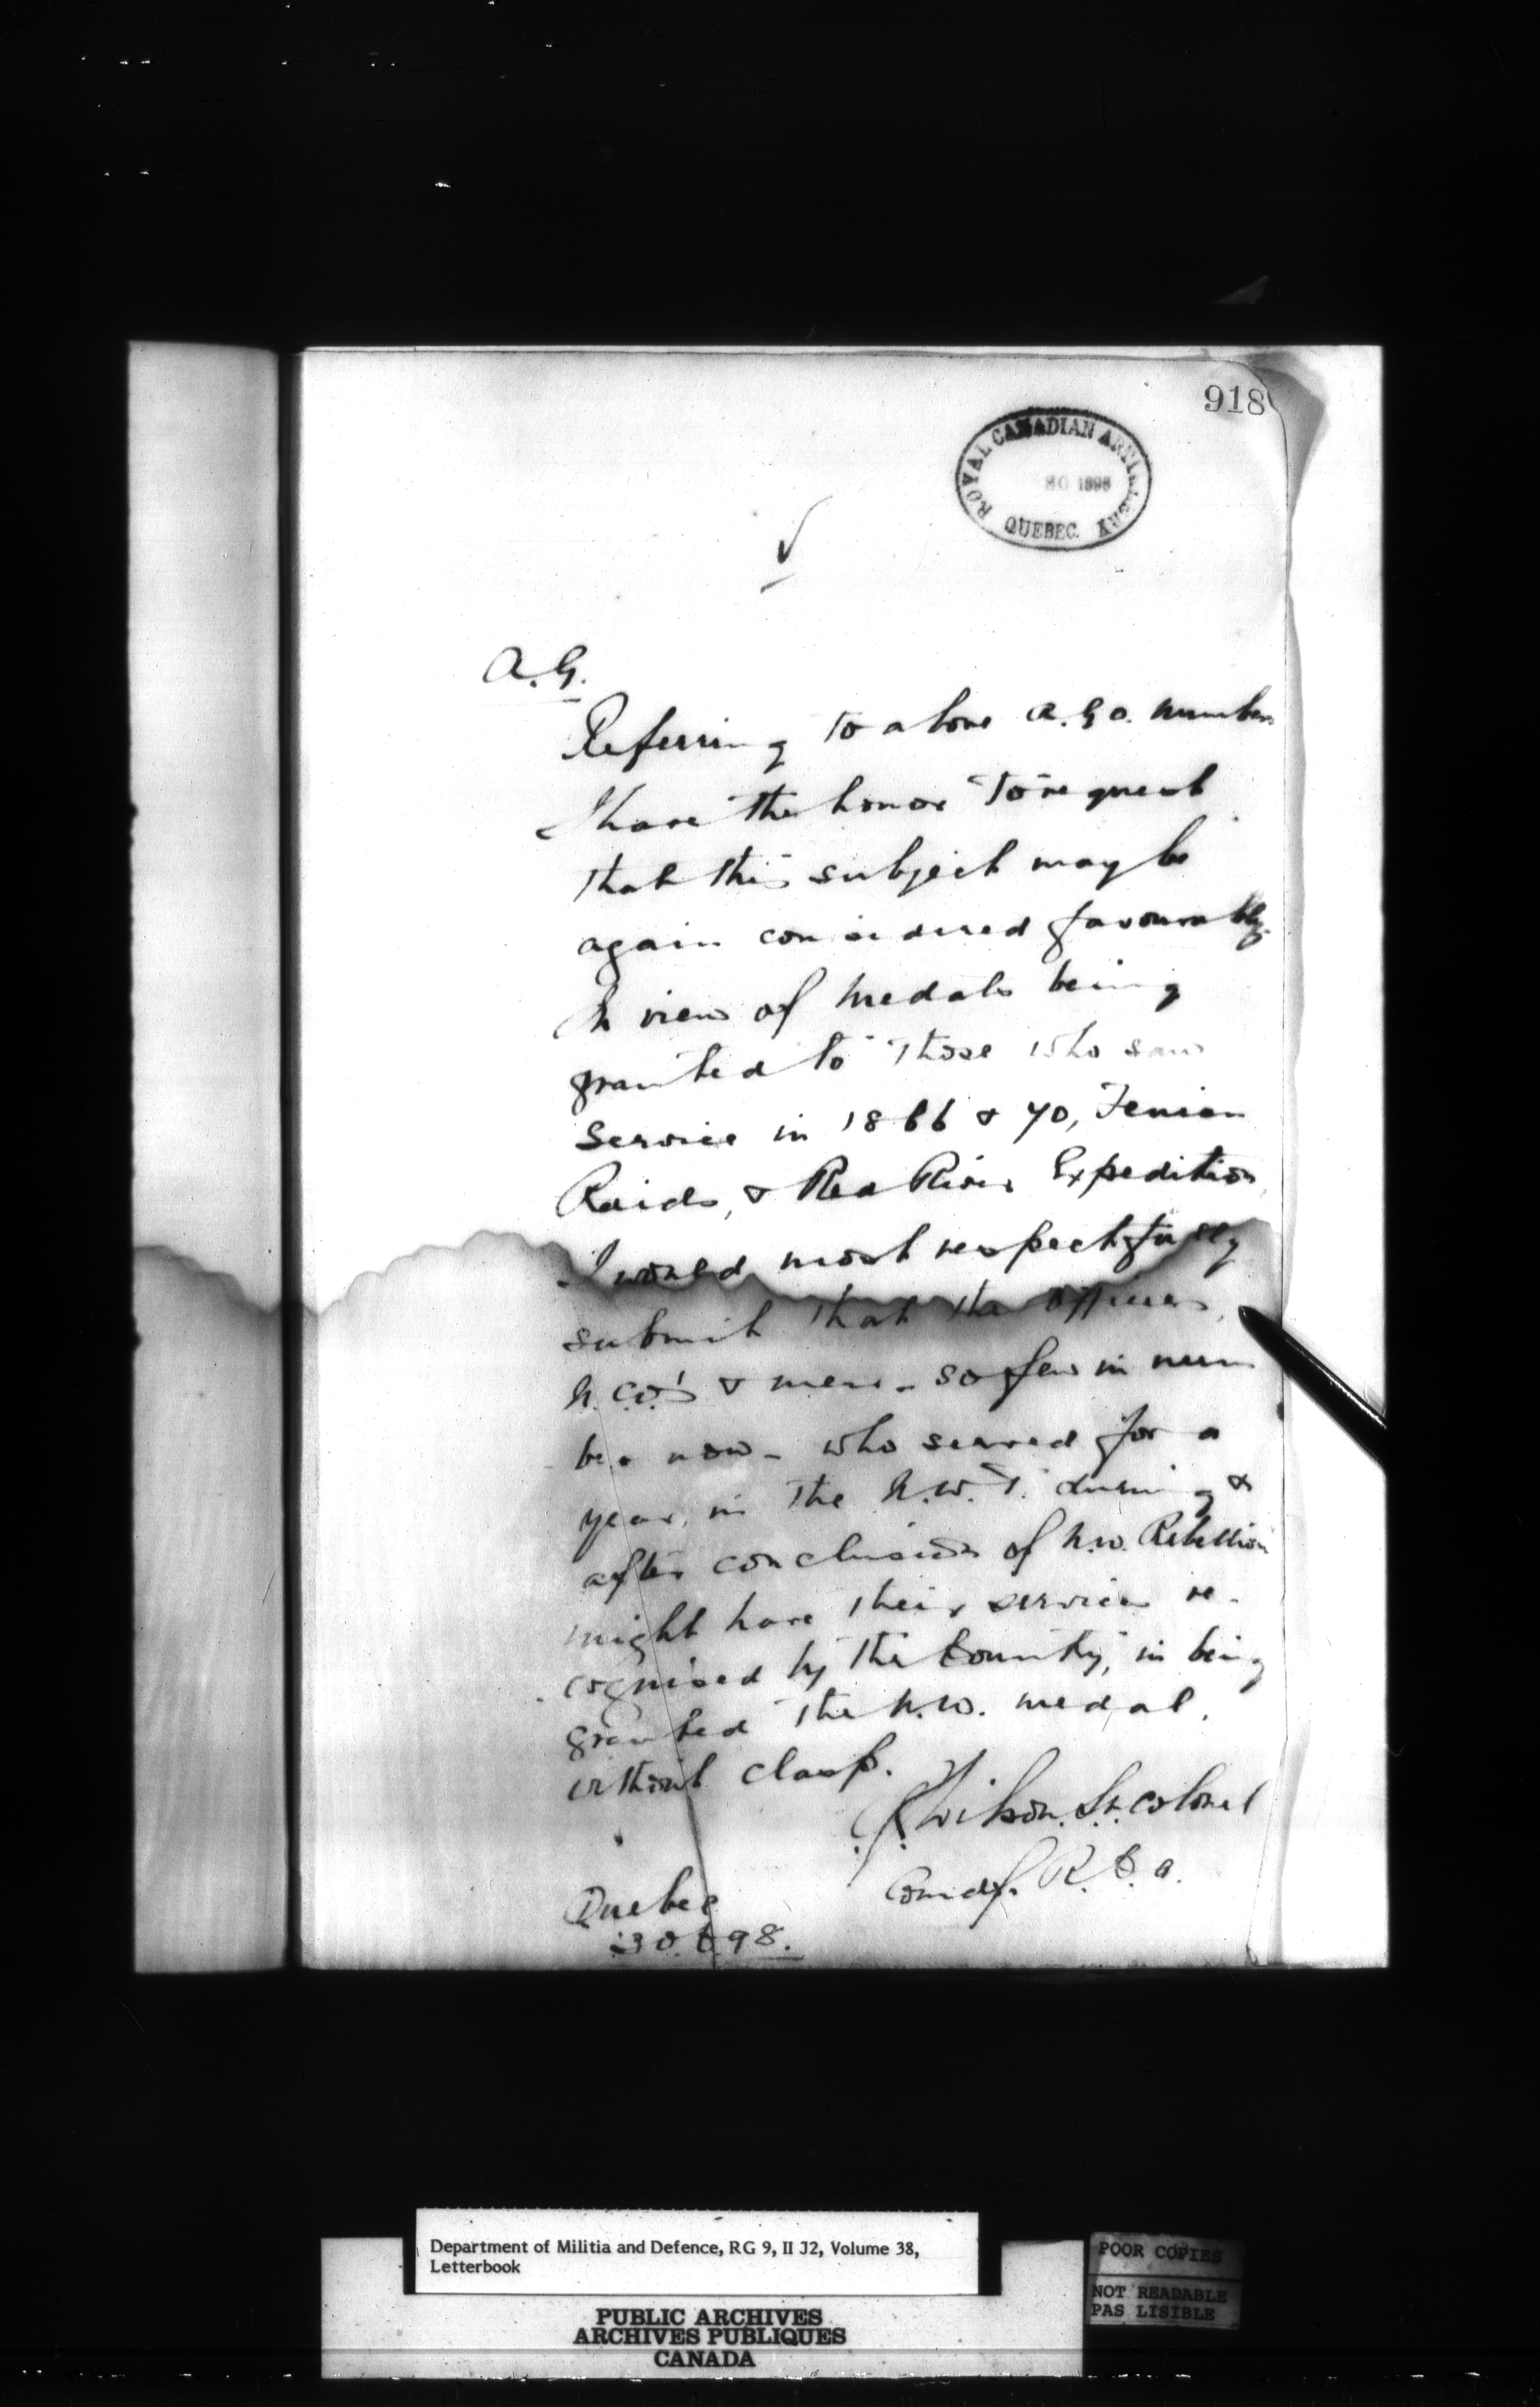 918
ROYAL CANADIAN ARTILLERY
30 1898
QUEBEC.
A.G.
Referring to above A.G.O. number
I have the honor to request
that this subject may be
again considered favourably.
In view of medals being
granted to those who saw
service in 1866 & 70, Fenian
Raids, & Red River Expedition,
I would most respectfully
submit that the officers,
N.C.O.'s & men - so few in num
ber now - who served for a
year, in the N.W.T. during &
after conclusion of N.W. Rebellion
might have their services re-
cognised by the Country, in being
granted the N.W. medal,
without clasp.
Wilson. Lt. Colonel
Comdg. R.C.A.
Quebec
30.6.98.
Department of Militia and Defence, RG 9, II J2, Volume 38,
Letterbook
PUBLIC ARCHIVES
ARCHIVES PUBLIQUES
CANADA
POOR COPIES
NOT READABLE
PAS LISIBLE